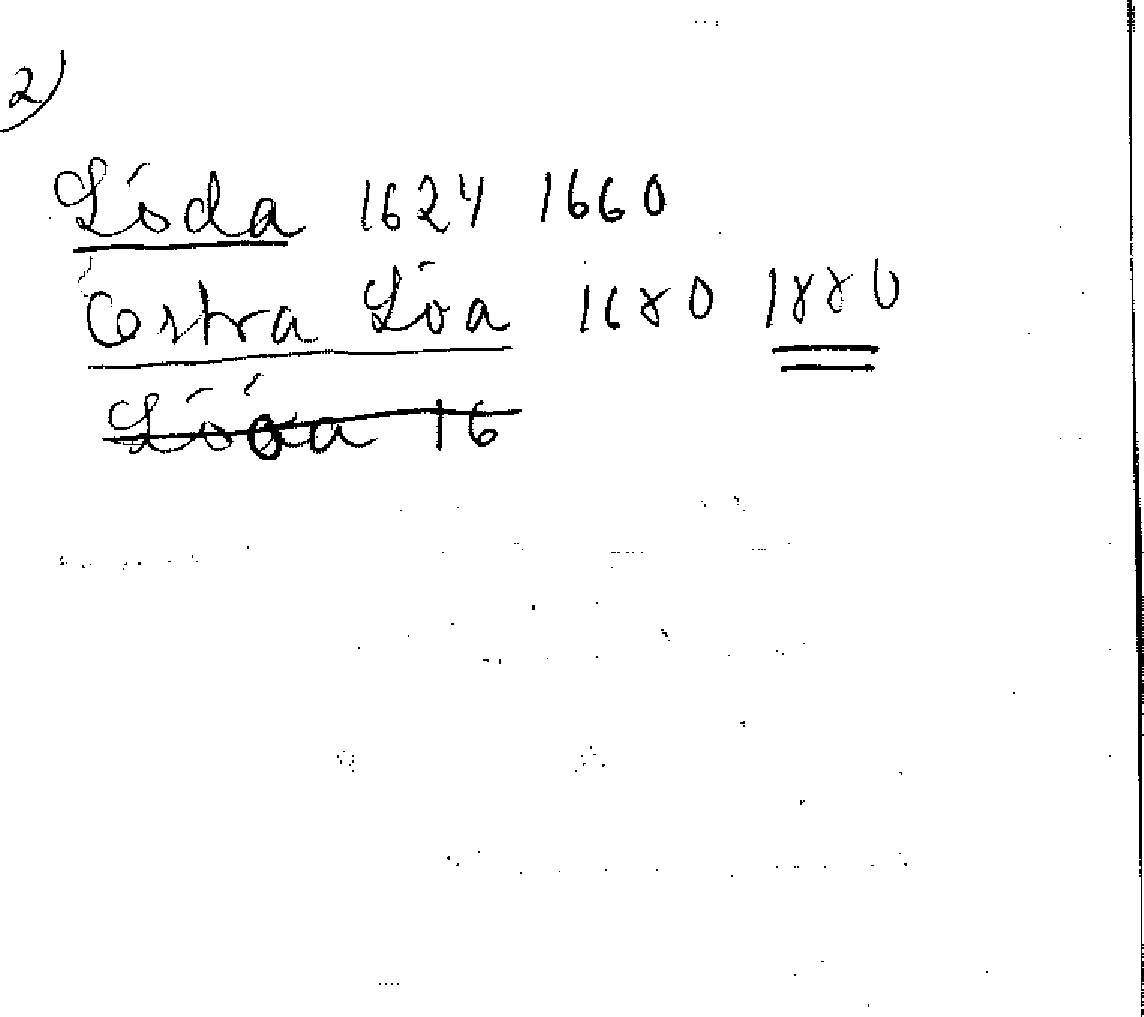 2)
Löda 1624 1660
Östra Löa 1680 1880
Löa 16